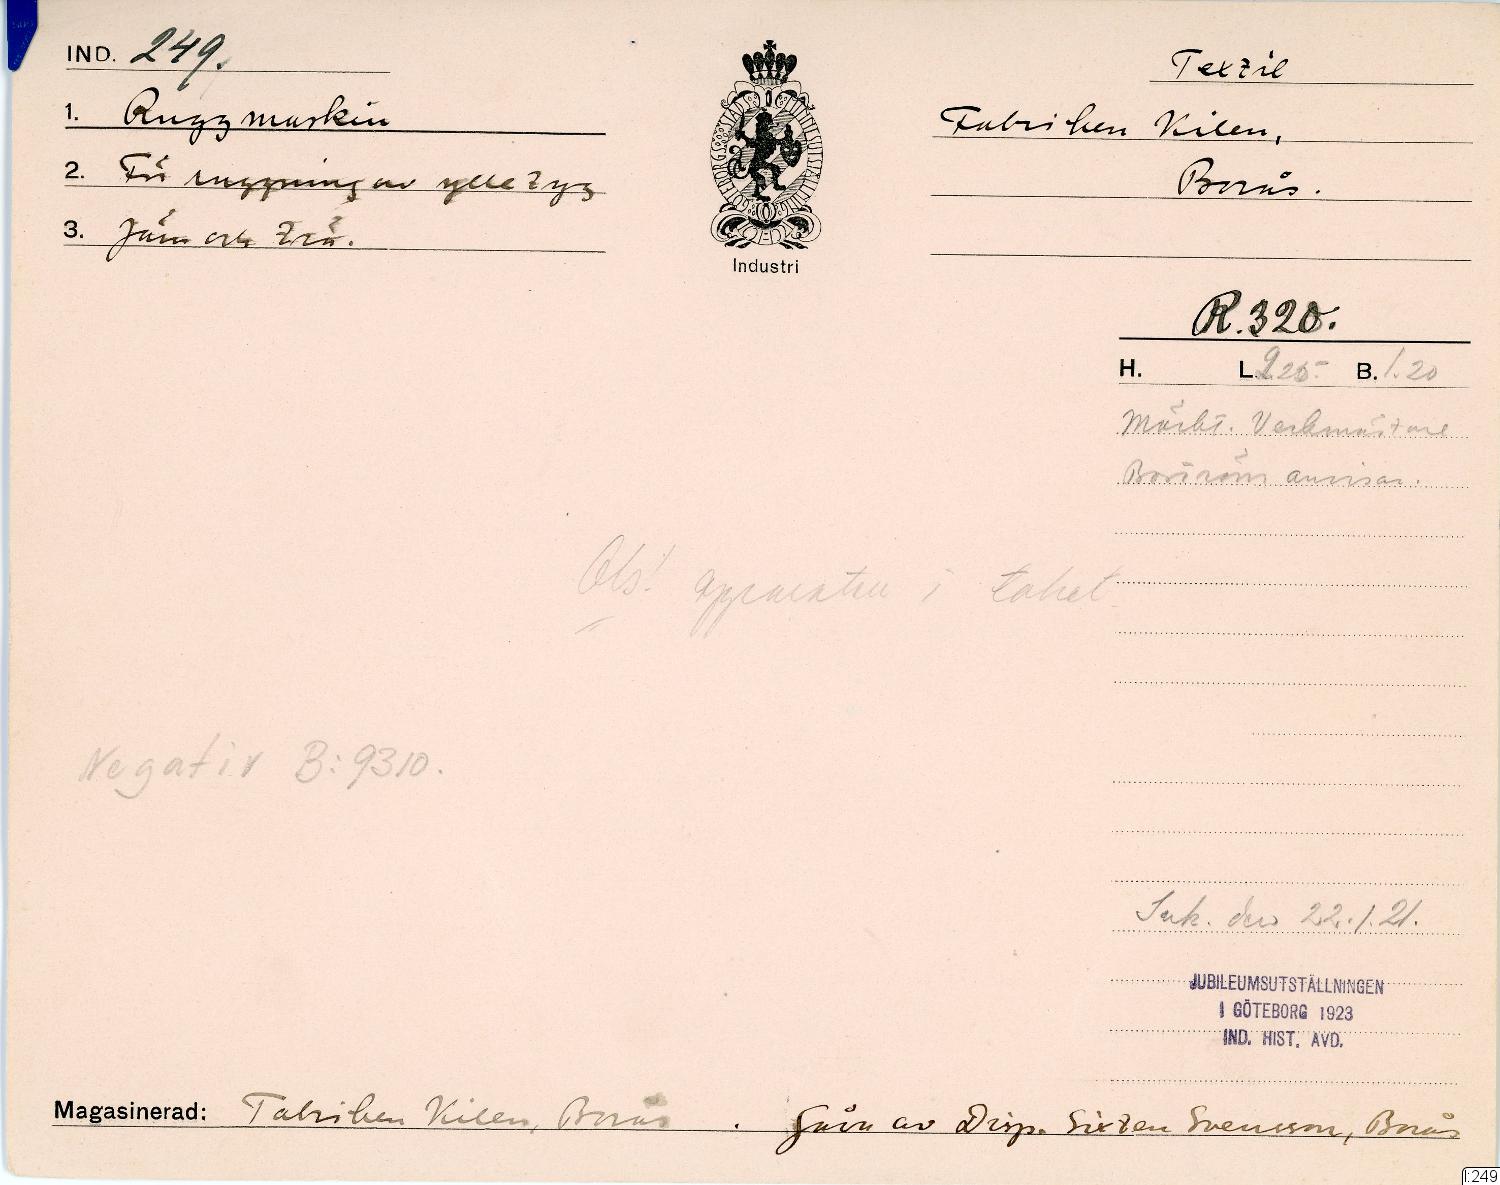 IND. 249.
1. Ruggmaskin
2. För ruggning av ylletyg
3. Järn och trä.
GÖTEBORGS STADS JUBILEUMSUTSTÄLLNING
Industri
Textil
Fabriken Kilen,
Borås.
R.320.
H. L. 2.25 B. 1.20
Märkt. Verkmästare
Boström anvisar.
Obs! apparaten i taket
Negativ B:9310.
Ink. den 22.1.21.
JUBILEUMSUTSTÄLLNINGEN
I GÖTEBORG 1923
IND. HIST. AVD.
Magasinerad: Fabriken Kilen, Borås. Gåva av Disp. Sixten Svensson, Borås
I:249